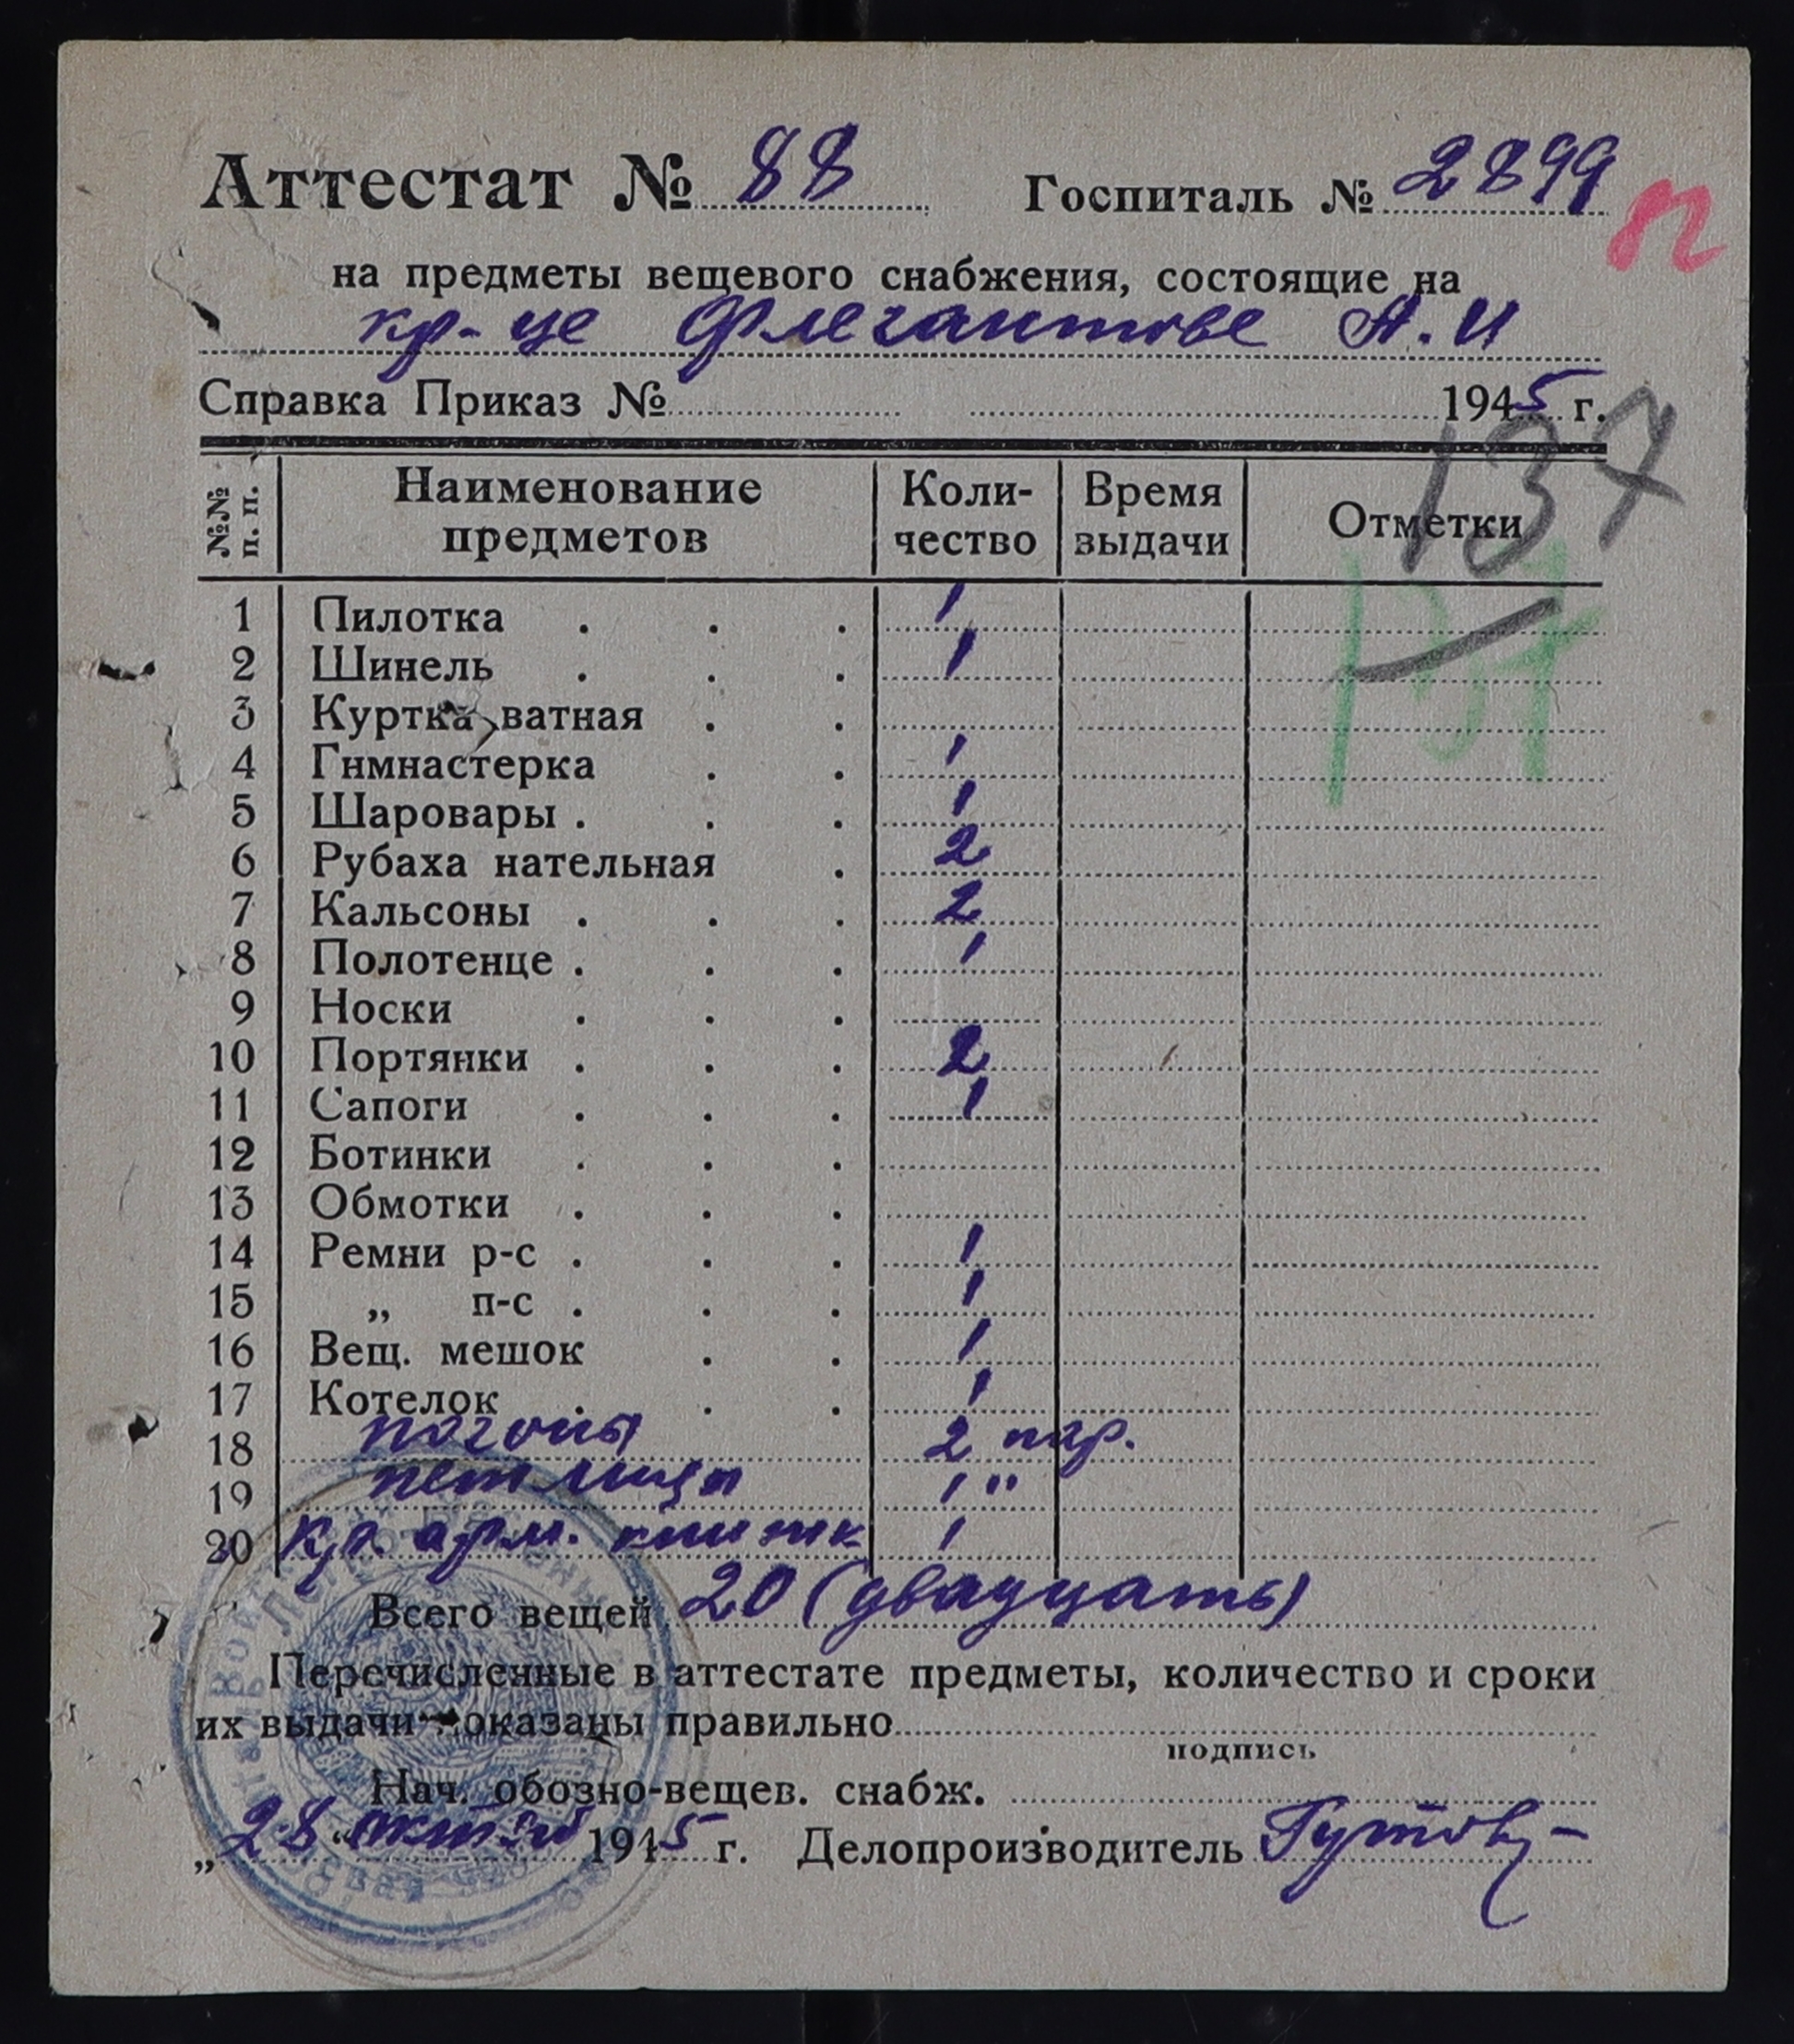 Аттестат № 88 Госпиталь № 2899
82
на предметы вещевого снабжения, состоящие на
кр-це Флегантове А. И
Справка Приказ № 1945 г.
137
№№ п. п. Наименование предметов Коли-чество Время выдачи Отметки
1 Пилотка . . . 1
2 Шинель . . . 1
3 Куртка ватная . .
4 Гимнастерка . . 1
5 Шаровары . . . 1
6 Рубаха нательная . 2
7 Кальсоны . . . 2
8 Полотенце . . . 1
9 Носки . . .
10 Портянки . . . 2
11 Сапоги . . . 1
12 Ботинки . . .
13 Обмотки . . .
14 Ремни р-с . . . 1
15 „ п-с . . . 1
16 Вещ. мешок . . 1
17 Котелок . . . 1
18 погоны 2 пар.
19 петлицы 1 "
20 Кр. арм. книжк 1
Всего вещей 20 (двадцать)
Перечисленные в аттестате предметы, количество и сроки
их выдачи оказаны правильно
подпись
Нач. обозно-вещев. снабж.
„28 “ 1945 г. Делопроизводитель